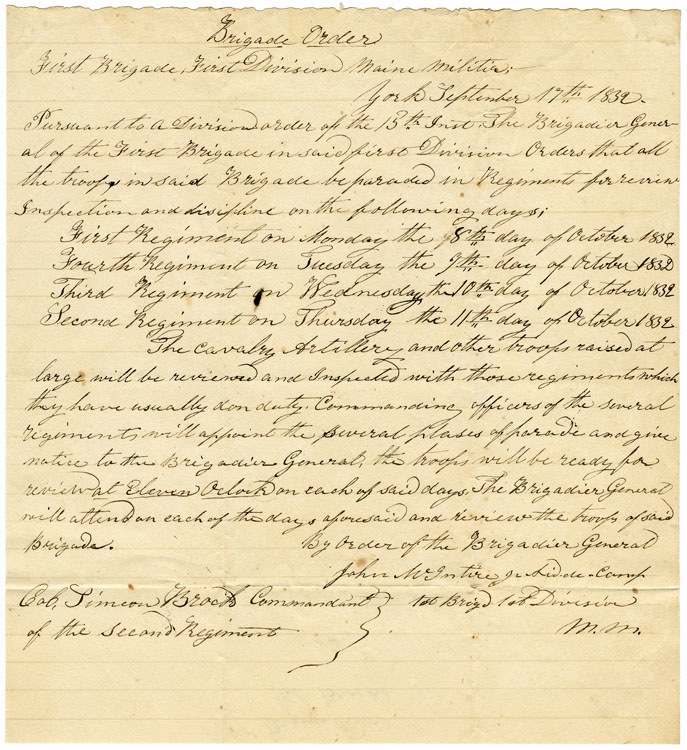 Brigade Order
First Brigade, First Division Maine Militia,
York September 17th 1832.
Pursuant to a Division order of the 13th Inst. The Brigadier Gener-
al of the First Brigade in said first Division Orders that all
the troops in said Brigade be paraded in Regiments for review
Inspection and disipline on the following days;
First Regiment on Monday the 8th day of October 1832
Fourth Regiment on Tuesday the 9th day of October 1832
Third Regiment on Wednesday the 10th day of October 1832
Second Regiment on Thursday the 11th day of October 1832
The Cavalry Artillery and other troops raised at
large will be reviewed and Inspected with those regiments which
they have usually don duty. Commanding officers of the several
regiments will appoint the several plases of parade and give
notice to the Brigadier General, the troops will be ready for
review at Eleven Oclock on each of said days. The Brigadier General
will attend on each of the days aforesaid and review the troops of said
Brigade. By Order of the Brigadier General
John McIntire Jr Aidde-Camp
Col. Simeon Brock Commandant 1st Brigd 1st Division
of the Second Regiment M.M.